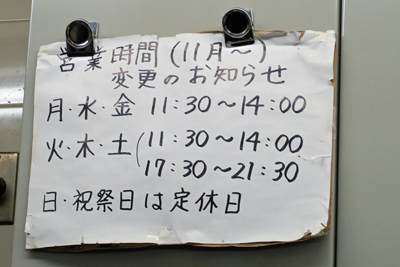 営業時間(11月〜)
変更のお知らせ
月・水・金 11:30〜14:00
火・木・土(11:30〜14:00
17:30〜21:30
日・祝祭日は定休日